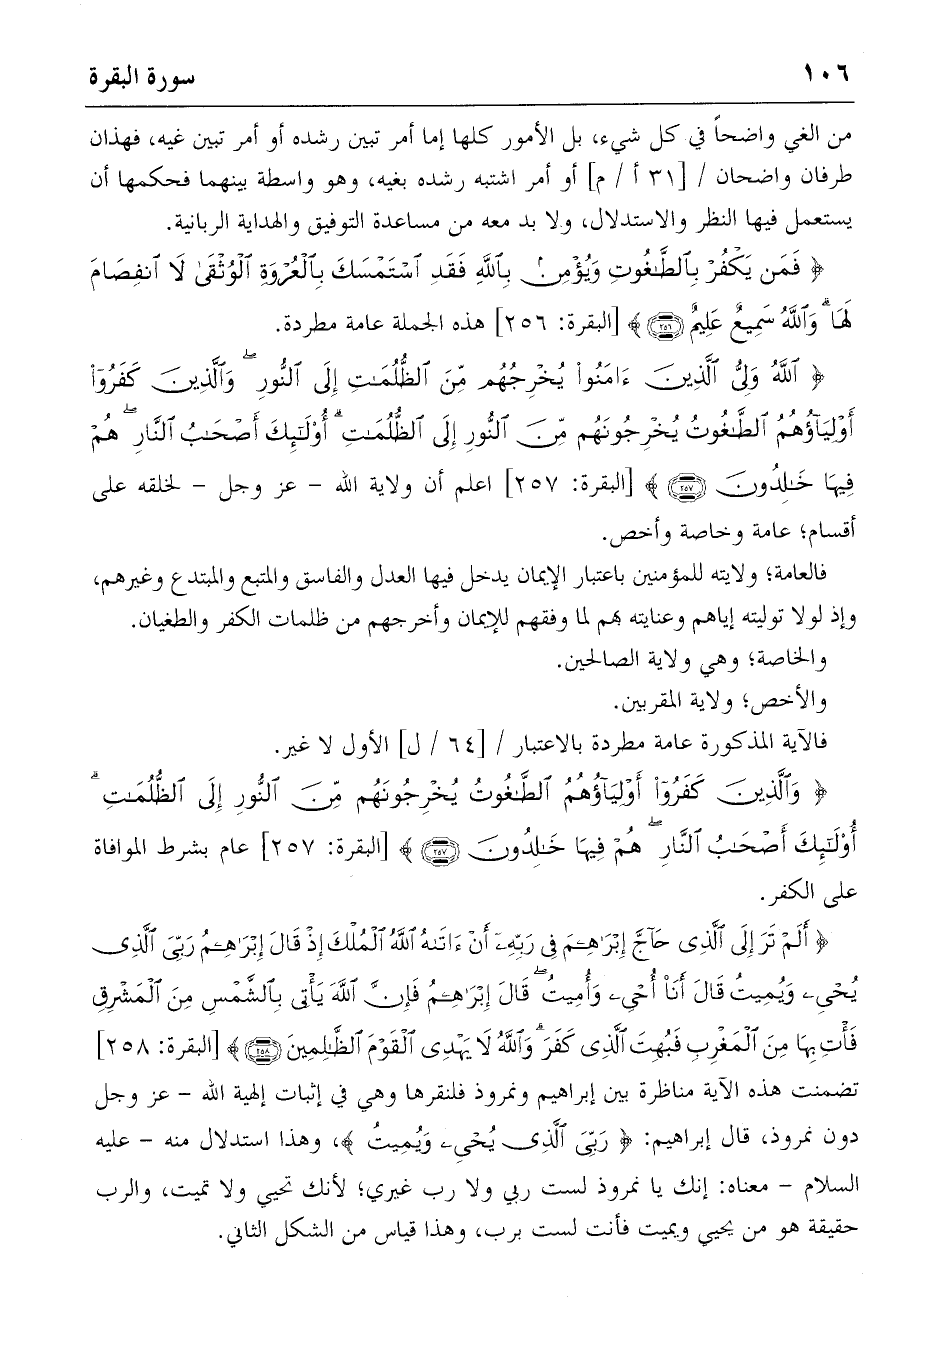 ١٠٦ سورة البقرة
من الغي واضحاً في كل شيء، بل الأمور كلها إما أمر تبين رشده أو أمر تبين غيه، فهذان
طرفان واضحان / [٣١ أ / م] أو أمر اشتبه رشده بغيه، وهو واسطة بينهما فحكمها أن
يستعمل فيها النظر والاستدلال، ولا بد معه من مساعدة التوفيق والهداية الربانية.
﴿ فَمَن يَكْفُرْ بِٱلطَّٰغُوتِ وَيُؤْمِنۢ بِٱللَّهِ فَقَدِ ٱسْتَمْسَكَ بِٱلْعُرْوَةِ ٱلْوُثْقَىٰ لَا ٱنفِصَامَ
لَهَا ۗ وَٱللَّهُ سَمِيعٌ عَلِيمٌ ٢٥٦ ﴾ [البقرة: ٢٥٦] هذه الجملة عامة مطردة.
﴿ ٱللَّهُ وَلِىُّ ٱلَّذِينَ ءَامَنُوا۟ يُخْرِجُهُم مِّنَ ٱلظُّلُمَٰتِ إِلَى ٱلنُّورِ ۖ وَٱلَّذِينَ كَفَرُوٓا۟
أَوْلِيَآؤُهُمُ ٱلطَّٰغُوتُ يُخْرِجُونَهُم مِّنَ ٱلنُّورِ إِلَى ٱلظُّلُمَٰتِ ۗ أُو۟لَٰٓئِكَ أَصْحَٰبُ ٱلنَّارِ ۖ هُمْ
فِيهَا خَٰلِدُونَ ٢٥٧ ﴾ [البقرة: ٢٥٧] اعلم أن ولاية الله - عز وجل - لخلقه على
أقسام؛ عامة وخاصة وأخص.
فالعامة؛ ولايته للمؤمنين باعتبار الإيمان يدخل فيها العدل والفاسق والمتبع والمبتدع وغيرهم،
وإذ لولا توليته إياهم وعنايته بهم لما وفقهم للإيمان وأخرجهم من ظلمات الكفر والطغيان.
والخاصة؛ وهي ولاية الصالحين.
والأخص؛ ولاية المقربين.
فالآية المذكورة عامة مطردة بالاعتبار / [٦٤ / ل] الأول لا غير.
﴿ وَٱلَّذِينَ كَفَرُوٓا۟ أَوْلِيَآؤُهُمُ ٱلطَّٰغُوتُ يُخْرِجُونَهُم مِّنَ ٱلنُّورِ إِلَى ٱلظُّلُمَٰتِ ۗ
أُو۟لَٰٓئِكَ أَصْحَٰبُ ٱلنَّارِ ۖ هُمْ فِيهَا خَٰلِدُونَ ٢٥٧ ﴾ [البقرة: ٢٥٧] عام بشرط الموافاة
على الكفر.
﴿ أَلَمْ تَرَ إِلَى ٱلَّذِى حَآجَّ إِبْرَٰهِـۧمَ فِى رَبِّهِۦٓ أَنْ ءَاتَىٰهُ ٱللَّهُ ٱلْمُلْكَ إِذْ قَالَ إِبْرَٰهِـۧمُ رَبِّىَ ٱلَّذِى
يُحْىِۦ وَيُمِيتُ قَالَ أَنَا۠ أُحْىِۦ وَأُمِيتُ ۖ قَالَ إِبْرَٰهِـۧمُ فَإِنَّ ٱللَّهَ يَأْتِى بِٱلشَّمْسِ مِنَ ٱلْمَشْرِقِ
فَأْتِ بِهَا مِنَ ٱلْمَغْرِبِ فَبُهِتَ ٱلَّذِى كَفَرَ ۗ وَٱللَّهُ لَا يَهْدِى ٱلْقَوْمَ ٱلظَّٰلِمِينَ ٢٥٨ ﴾ [البقرة: ٢٥٨]
تضمنت هذه الآية مناظرة بين إبراهيم ونمروذ فلنقرها وهي في إثبات إلهية الله - عز وجل
دون نمروذ، قال إبراهيم: ﴿ رَبِّىَ ٱلَّذِى يُحْىِۦ وَيُمِيتُ ﴾، وهذا استدلال منه - عليه
السلام - معناه: إنك يا نمروذ لست ربي ولا رب غيري؛ لأنك لا تحيي ولا تميت، والرب
حقيقة هو من يحيي ويميت فأنت لست برب، وهذا قياس من الشكل الثاني.